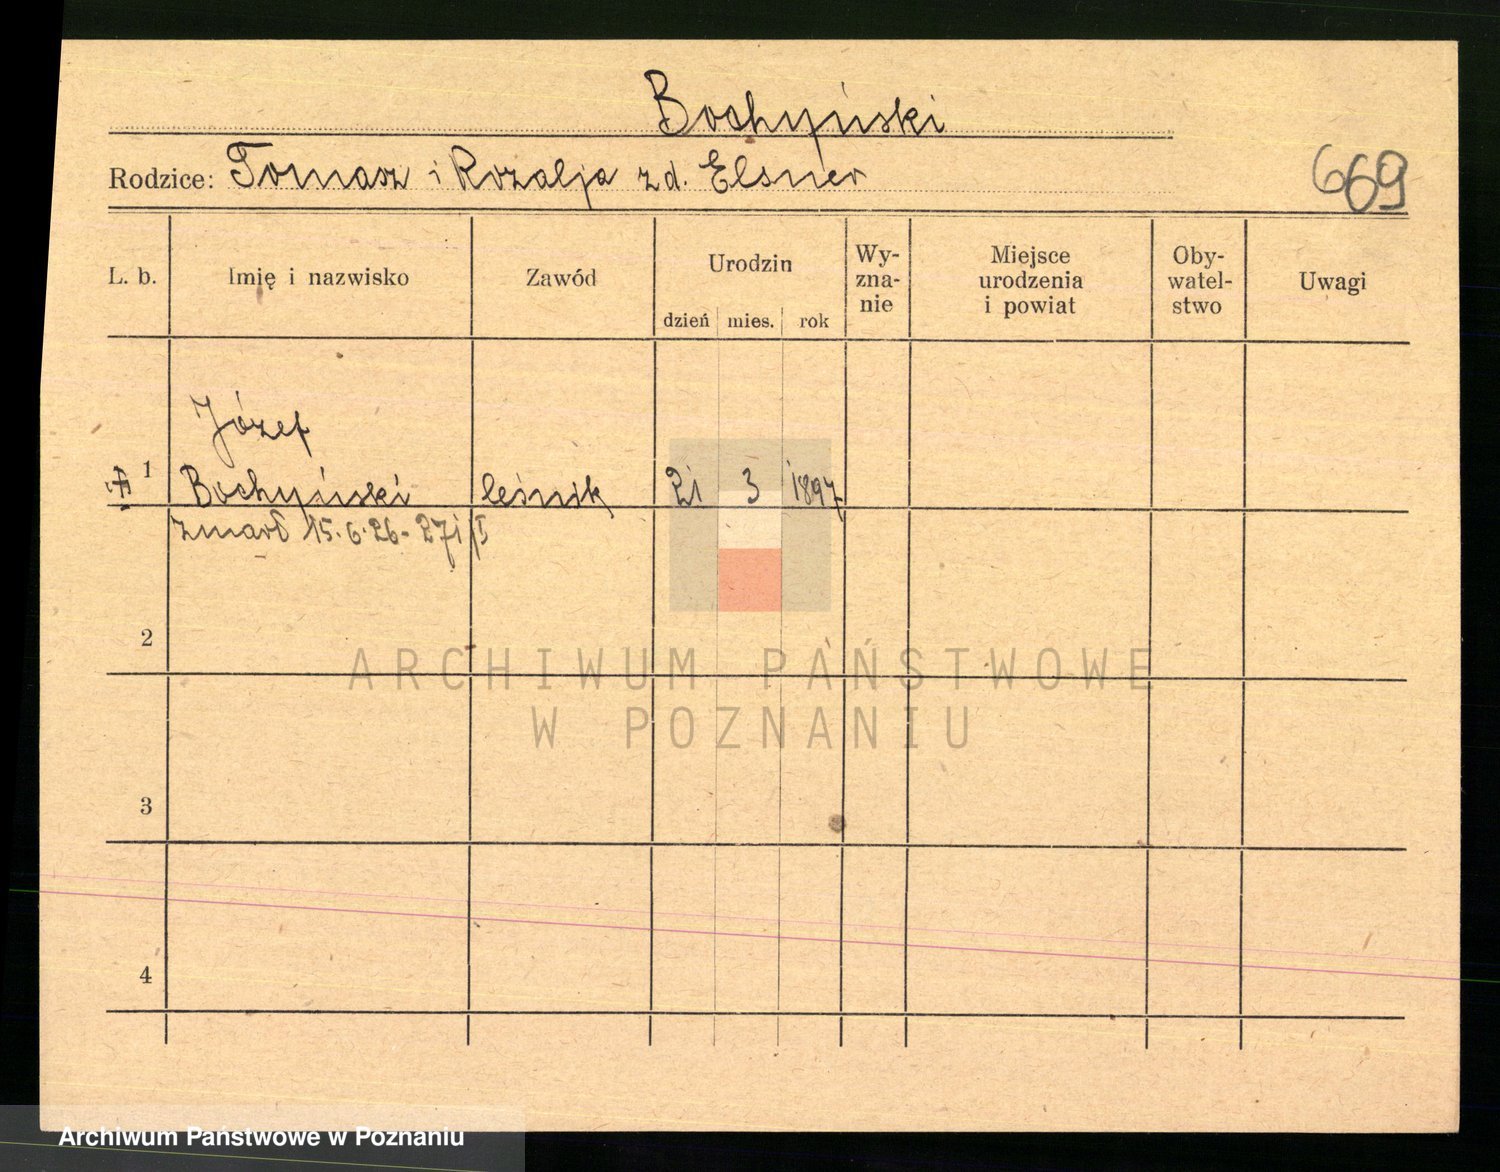 Bochyński
Rodzice: Tomasz i Rozalja zd. Elsner
669
L. b.
Imię i nazwisko
Zawód
Urodzin
dzień mies. rok
Wy-
zna-
nie
Miejsce
urodzenia
i powiat
Oby-
watel-
stwo
Uwagi
1
Józef
Bochyński leśnik 21 3 1897
zmarł 15.6.26 -
2
3
4
ARCHIWUM PAŃSTWOWE
W POZNANIU
Archiwum Państwowe w Poznaniu